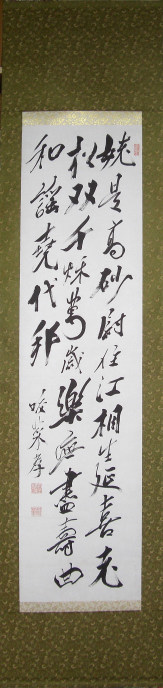 姥是高砂尉住江相生延喜老
松双千秋万歳楽応尽寿曲
和謡尭代邦